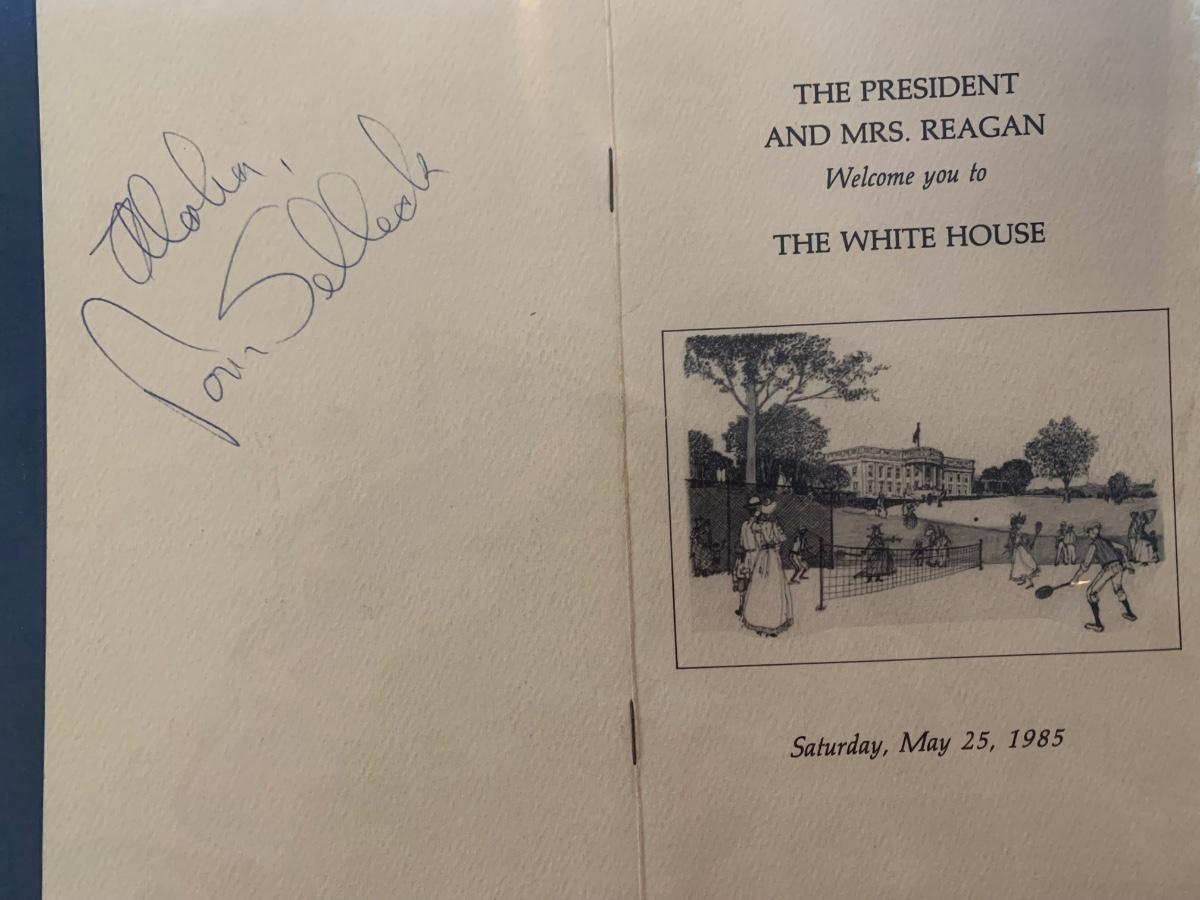 Aloha,
Tom Selleck
THE PRESIDENT
AND MRS. REAGAN
Welcome you to
THE WHITE HOUSE
Saturday, May 25, 1985